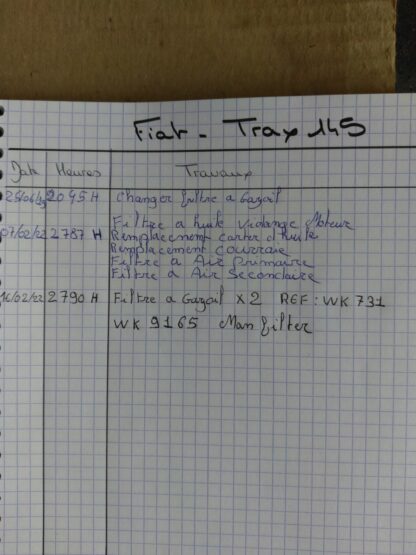 Fiat - Trax 145
Date Heures Travaux
2095 H Changer filtre a Gazoil
Filtre a huile Vidange Moteur
07/02/22 2787 H Remplacement carter d'huile
Remplacement courraie
Filtre a Air Primaire
Filtre a Air Secondaire
16/02/22 2790 H Filtre a Gazoil X2 REF : WK 731
WK 9165 Man filter